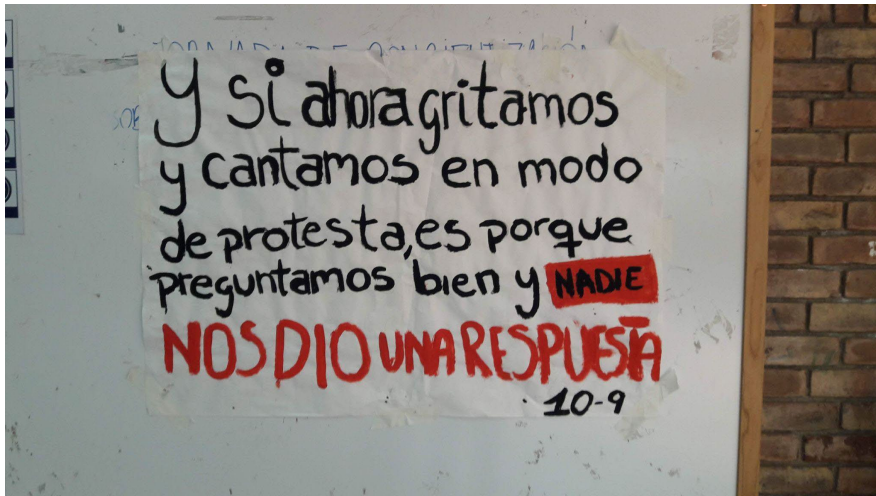 JORNADA DE CONCIENTIZACIÓN
SOB
Y si ahora gritamos
y cantamos en modo
de protesta, es porque
preguntamos bien y NADIE
NOS DIO UNA RESPUESTA
10-9